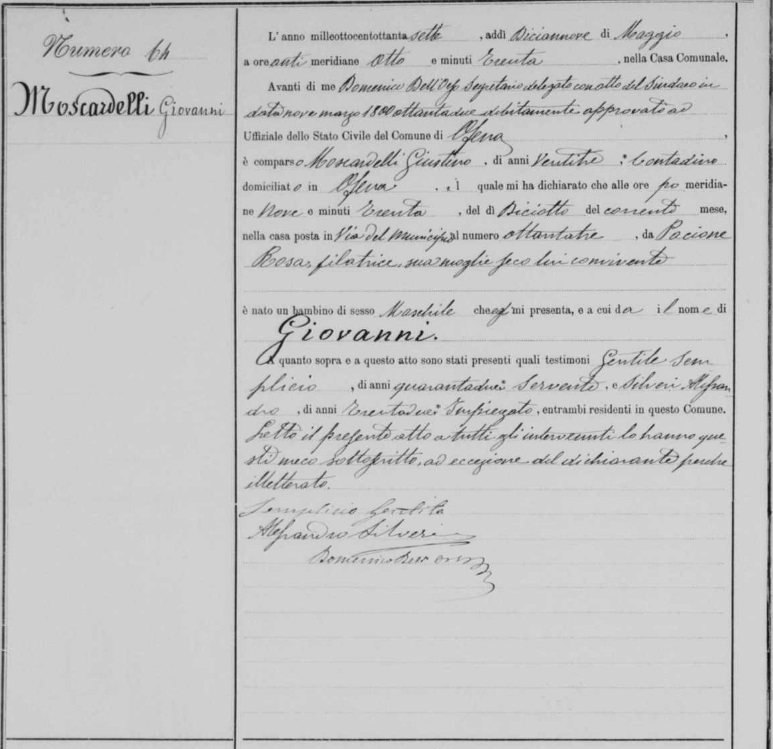 Numero 64
Moscardelli Giovanni
L' anno milleottocentottanta sette , addì Diciannove di Maggio ,
a ore anti meridiane Otto e minuti Trenta , nella Casa Comunale.
Avanti di me Domenico Dell'Orso Segretario delegato con atto del Sindaco in
data nove marzo 1800 ottantadue debitamente approvato ad
Uffiziale dello Stato Civile del Comune di Ofena ,
è comparso Moscardelli Giustino , di anni Ventitre : Contadino
domiciliato in Ofena , il quale mi ha dichiarato che alle ore po meridia-
ne Nove e minuti Trenta , del dì Diciotto del corrente mese,
nella casa posta in Via del Municipio al numero ottantatre , da Pacione
Rosa, filatrice, sua moglie seco lui convivente
è nato un bambino di sesso Maschile che mi presenta, e a cui da il nome di
Giovanni.
A quanto sopra e a questo atto sono stati presenti quali testimoni Gentile Sem
plicio , di anni quarantadue: Servente, e Silveri Alessan
dro , di anni Trentadue: Impiegato, entrambi residenti in questo Comune.
Letto il presente atto a tutti gli intervenuti lo hanno que
sti meco sottoscritto, ad eccezione del dichiarante perchè
illetterato.
Semplicio Gentile
Alessandro Silveri
Domenico Dell'Orso